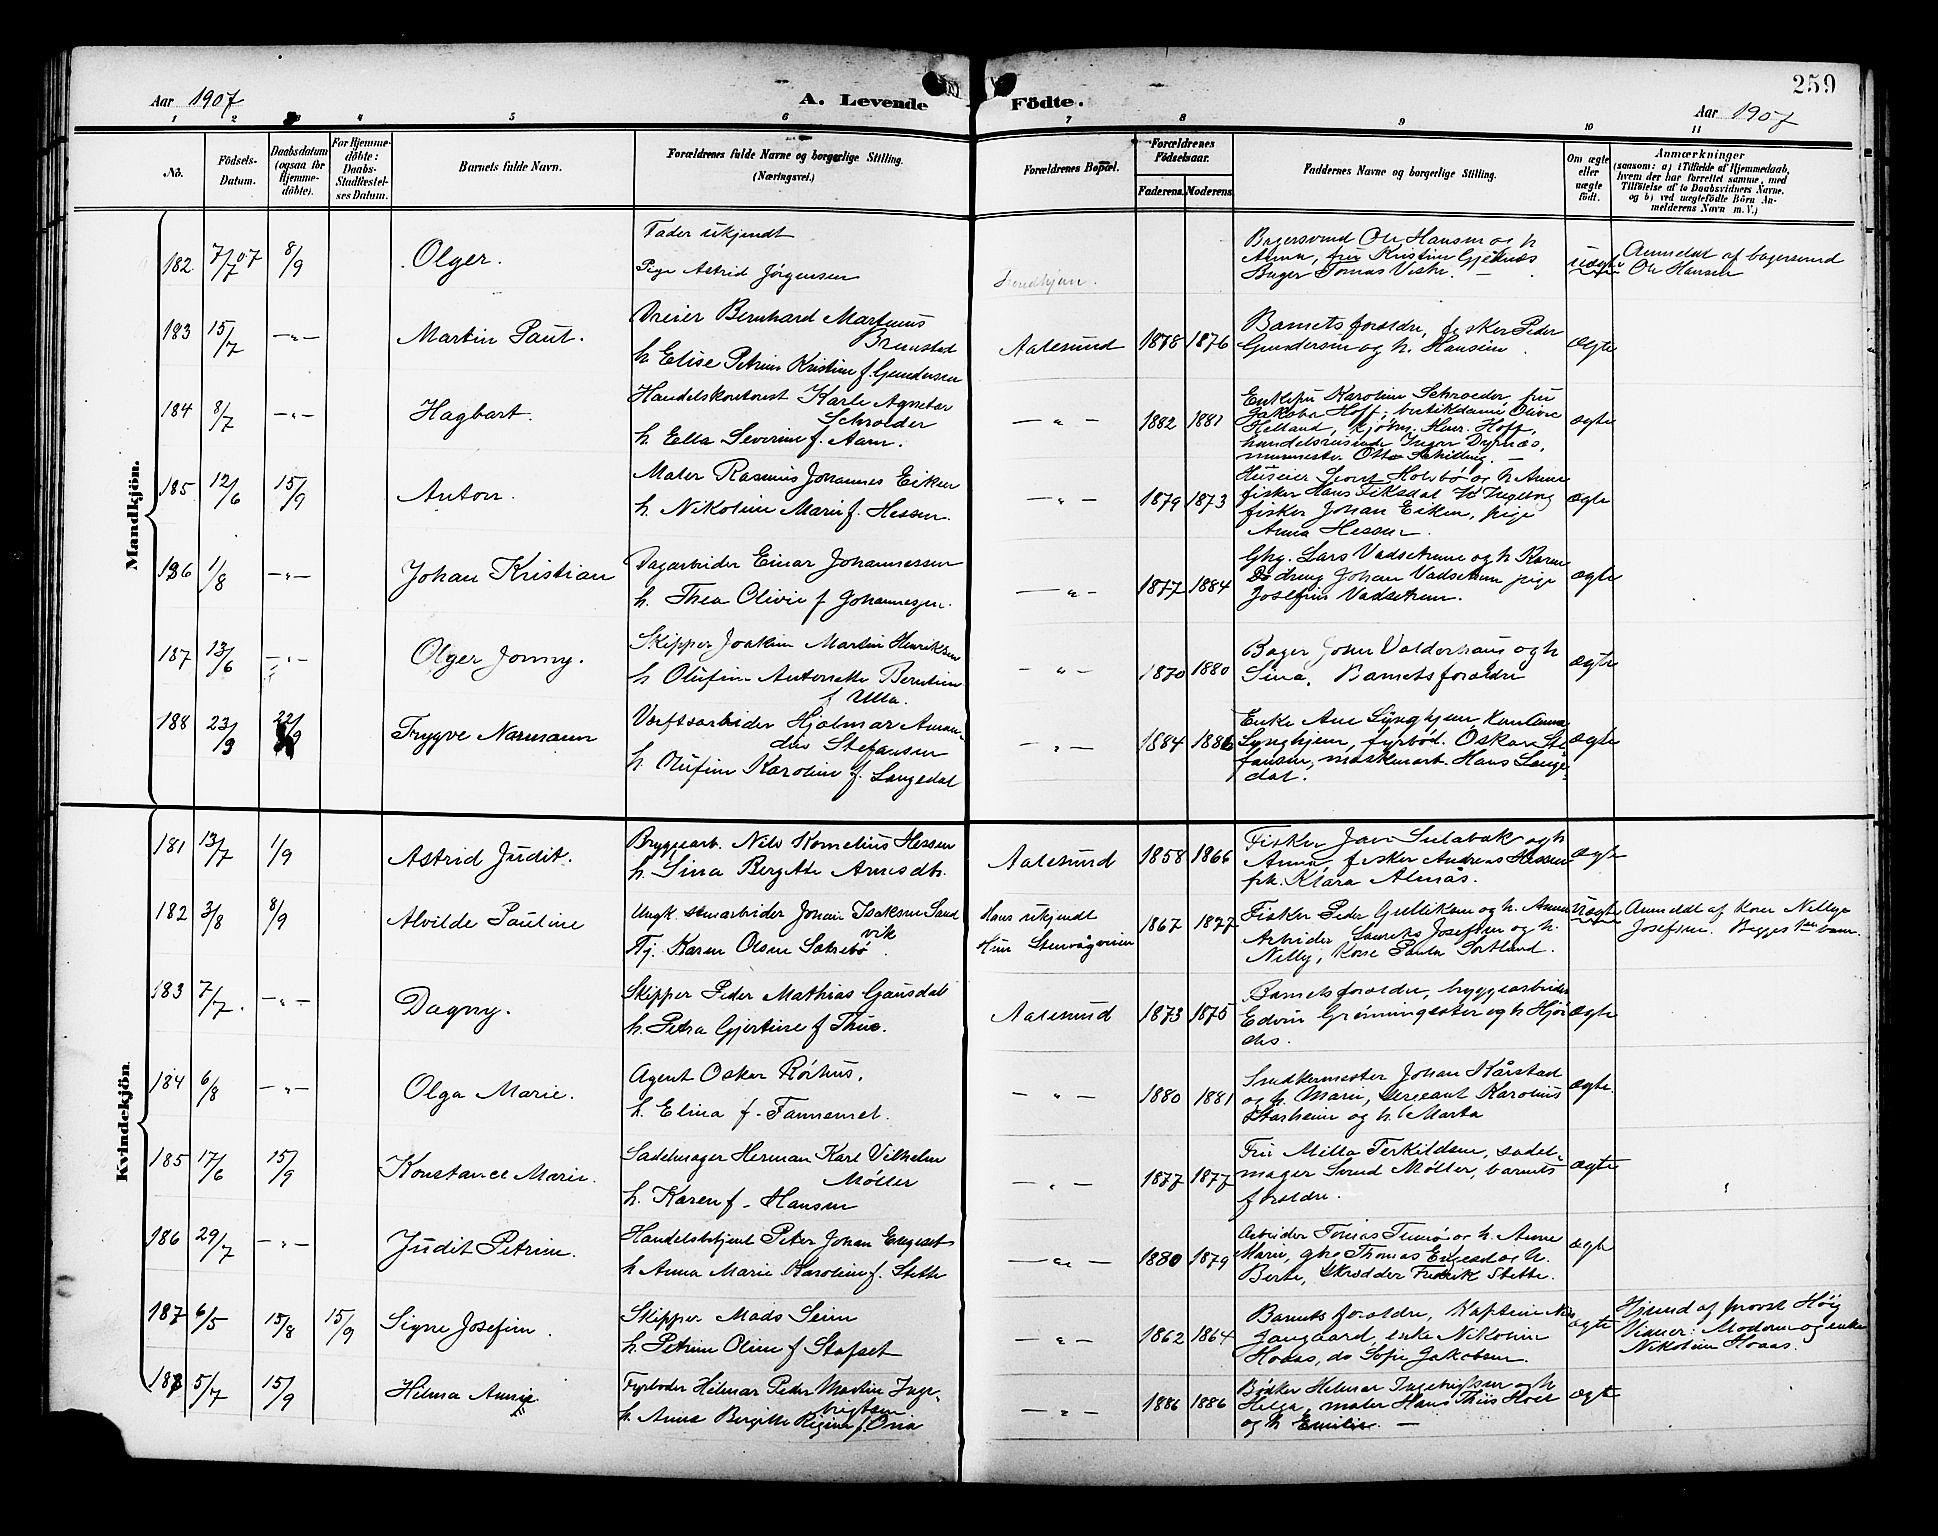 259
Aar 1907
A. Levende Födte.
Aar 1907
1 2 3 4 5 6 7 8 9 10 11
No.
Födsels-Datum.
Daabsdatum (ogsaa for Hjemmedöbte).
For Hjemmedöbte: Daabs-Stadfæstelses Datum.
Barnets fulde Navn.
Forældrenes fulde Navne og borgerlige Stilling. (Næringsvei.)
Forældrenes Bopæl.
Forældrenes Födselsaar.
Faderens. Moderens.
Faddernes Navne og borgerlige Stilling.
Om ægte eller uægte födt.
Anmærkninger
(saasom: a) i Tilfælde af Hjemmedaab,
hvem der har forrettet samme, med
Tilföielse af to Daabsvidners Navne.
og b) ved uægtefödte Börn Anmelderens Navn m. V.)
Mandkjön.
182 7/7 07 8/9 Olger.
Fader ukjendt
Pige Astrid Jörgensen
Bagersvend Ole Hansen og h
Anna, fru Kristine Gjeknes
Bager Tomas Vestre. —
uægte
Anmeldt af bagersvend
Ole Hansen
183 15/7 —"— Martin Paul.
Dreier Bernhard Martinus
Brunstad
h. Elise Petrine Kristine f. Gundersen
Aalesund 1878 1876
Barnets forældre, fisker Peder
Gundersen og h. Hansine.
Ægte
184 8/7 —"— Hagbart.
Handelskontorist Karl Agnetus
Schrøder
h. Ella Severine f. Aam.
—"— 1882 1881
Enkefru Karoline Schroeder, fru
Jakoba Hoff, butikdame Olivie
Helland, kjøbm. Hans Hoff,
handelsreisende Inger Dyrnæs,
murmester Otto Schilling. —
ægte
185 12/6 15/9 Anton.
Maler Rasmus Johannes Eiken
h. Nikoline Marie f. Hessen.
—"— 1879 1873
fisker Hans Fiksdal h Ingeborg
fisker Johan Eiken, pige
Anna Hessen.
ægte
186 1/8 —"— Johan Kristian
Dagarbeider Einar Johannessen
h. Thea Olivie f Johannesen.
—"— 1877 1884
Ghg. Lars Vadsetrene og h Karen
Dödreng Johan Vadsetrem pige
Josefine Vadsetrem.
ægte
187 13/6 —"— Olger Jonny.
Skipper Joakim Martin Henriksen
h Olufine Antonette Berntine
f Ulla.
—"— 1870 1880
Bager Johan Valderhaug og h
Sina, Barnets forældre
ægte
188 23/9 22/9 Trygve Normann
Værftsarbeider Hjalmar Aman-
dus Stefansen
h. Olufine Karoline f. Langedal
—"— 1884 1886
Enke Ane Synghjem, Kone Anna
Synghjem, fyrbød. Oskar Ste
fansen, maskinarb. Hans Lange
dal.
ægte
Kvindekjön
181 13/7 1/9 Astrid Judit.
Bryggearb. Nils Kornelius Hessen
h. Sina Bergitte Arnesdtr.
Aalesund 1858 1866
Fisker Jan Sulabak og h
Anna, fisker Andreas Hessen
frk. Klara Almås.
ægte
182 3/8 8/9 Alvilde Pauline
Ungk. stenarbeider Johan Isaksen Sand
vik
Tj. Karen Olsen Sætrebø.
Hans ukjendt
Hun Stenvågveien
1867 1877
Fisker Peder Gulliksen og h. Anna
Arbeider Laurits Josefsen og h.
Nelly, Kone Paula Sortland.
Uægte
Anmeldt af Kone Nellye
Josefsen. Begges 1ste barn.
183 7/7. —"— Dagny.
Skipper Peder Mathias Gausdal
h. Petra Gjertine f Thue.
Aalesund 1873 1875
Barnets forældre, bryggearbeider
Edvin Grönningsæter og h Hjør
dis.
ægte
184 6/8 —"— Olga Marie.
Agent Oskar Rørhus.
h. Elina f. Tannemel.
—"— 1880 1881
Snedkermester Johan Kårstad
og h. Marie, sergeant Karolius
Starheim og h. Marta
ægte.
185 17/6 15/9 Konstance Marie.
Sadelmager Herman Karl Vilhelm
Møller
h. Karen f. Hansen
—"— 1877 1877
Fru Milla Terkildsen, sadel-
mager Svend Møller, barnets
forældre.
ægte
186 29/7 —"— Judit Petrine.
Handelsbetjent Peter Johan Engeset
h Anna Marie Karoline f. Stette
—"— 1880 1879
Arbeider Tomas Tennø og h. Anne
Marie, ghg Thomas Engeset og h.
Berte, Skrædder Fredrik Stette.
ægte
187 6/5 15/8 15/9 Signe Josefine.
Skipper Mads Seim
h Petrine Oline f Stafset
—"— 1862 1864
Barnets forældre, Kaptein Nils
Jangaard, enke Nikoline
Hoaas, do Sofie Jakobsen.
ægte
Hjemd af provst Høy
Vidner: Moderen og enke
Nikoline Hoaas.
188 5/7 15/9 Hilma Annie
Fyrbøder Hilmar Peder Martin Inge-
brigtsen
h. Anna Bergitte Regine f. Ona
—"— 1886 1886
Bødker Helmar Ingebrigtsen og h
Helga, maler Hans Thiis Hoel
og h Emilie. —
ægte